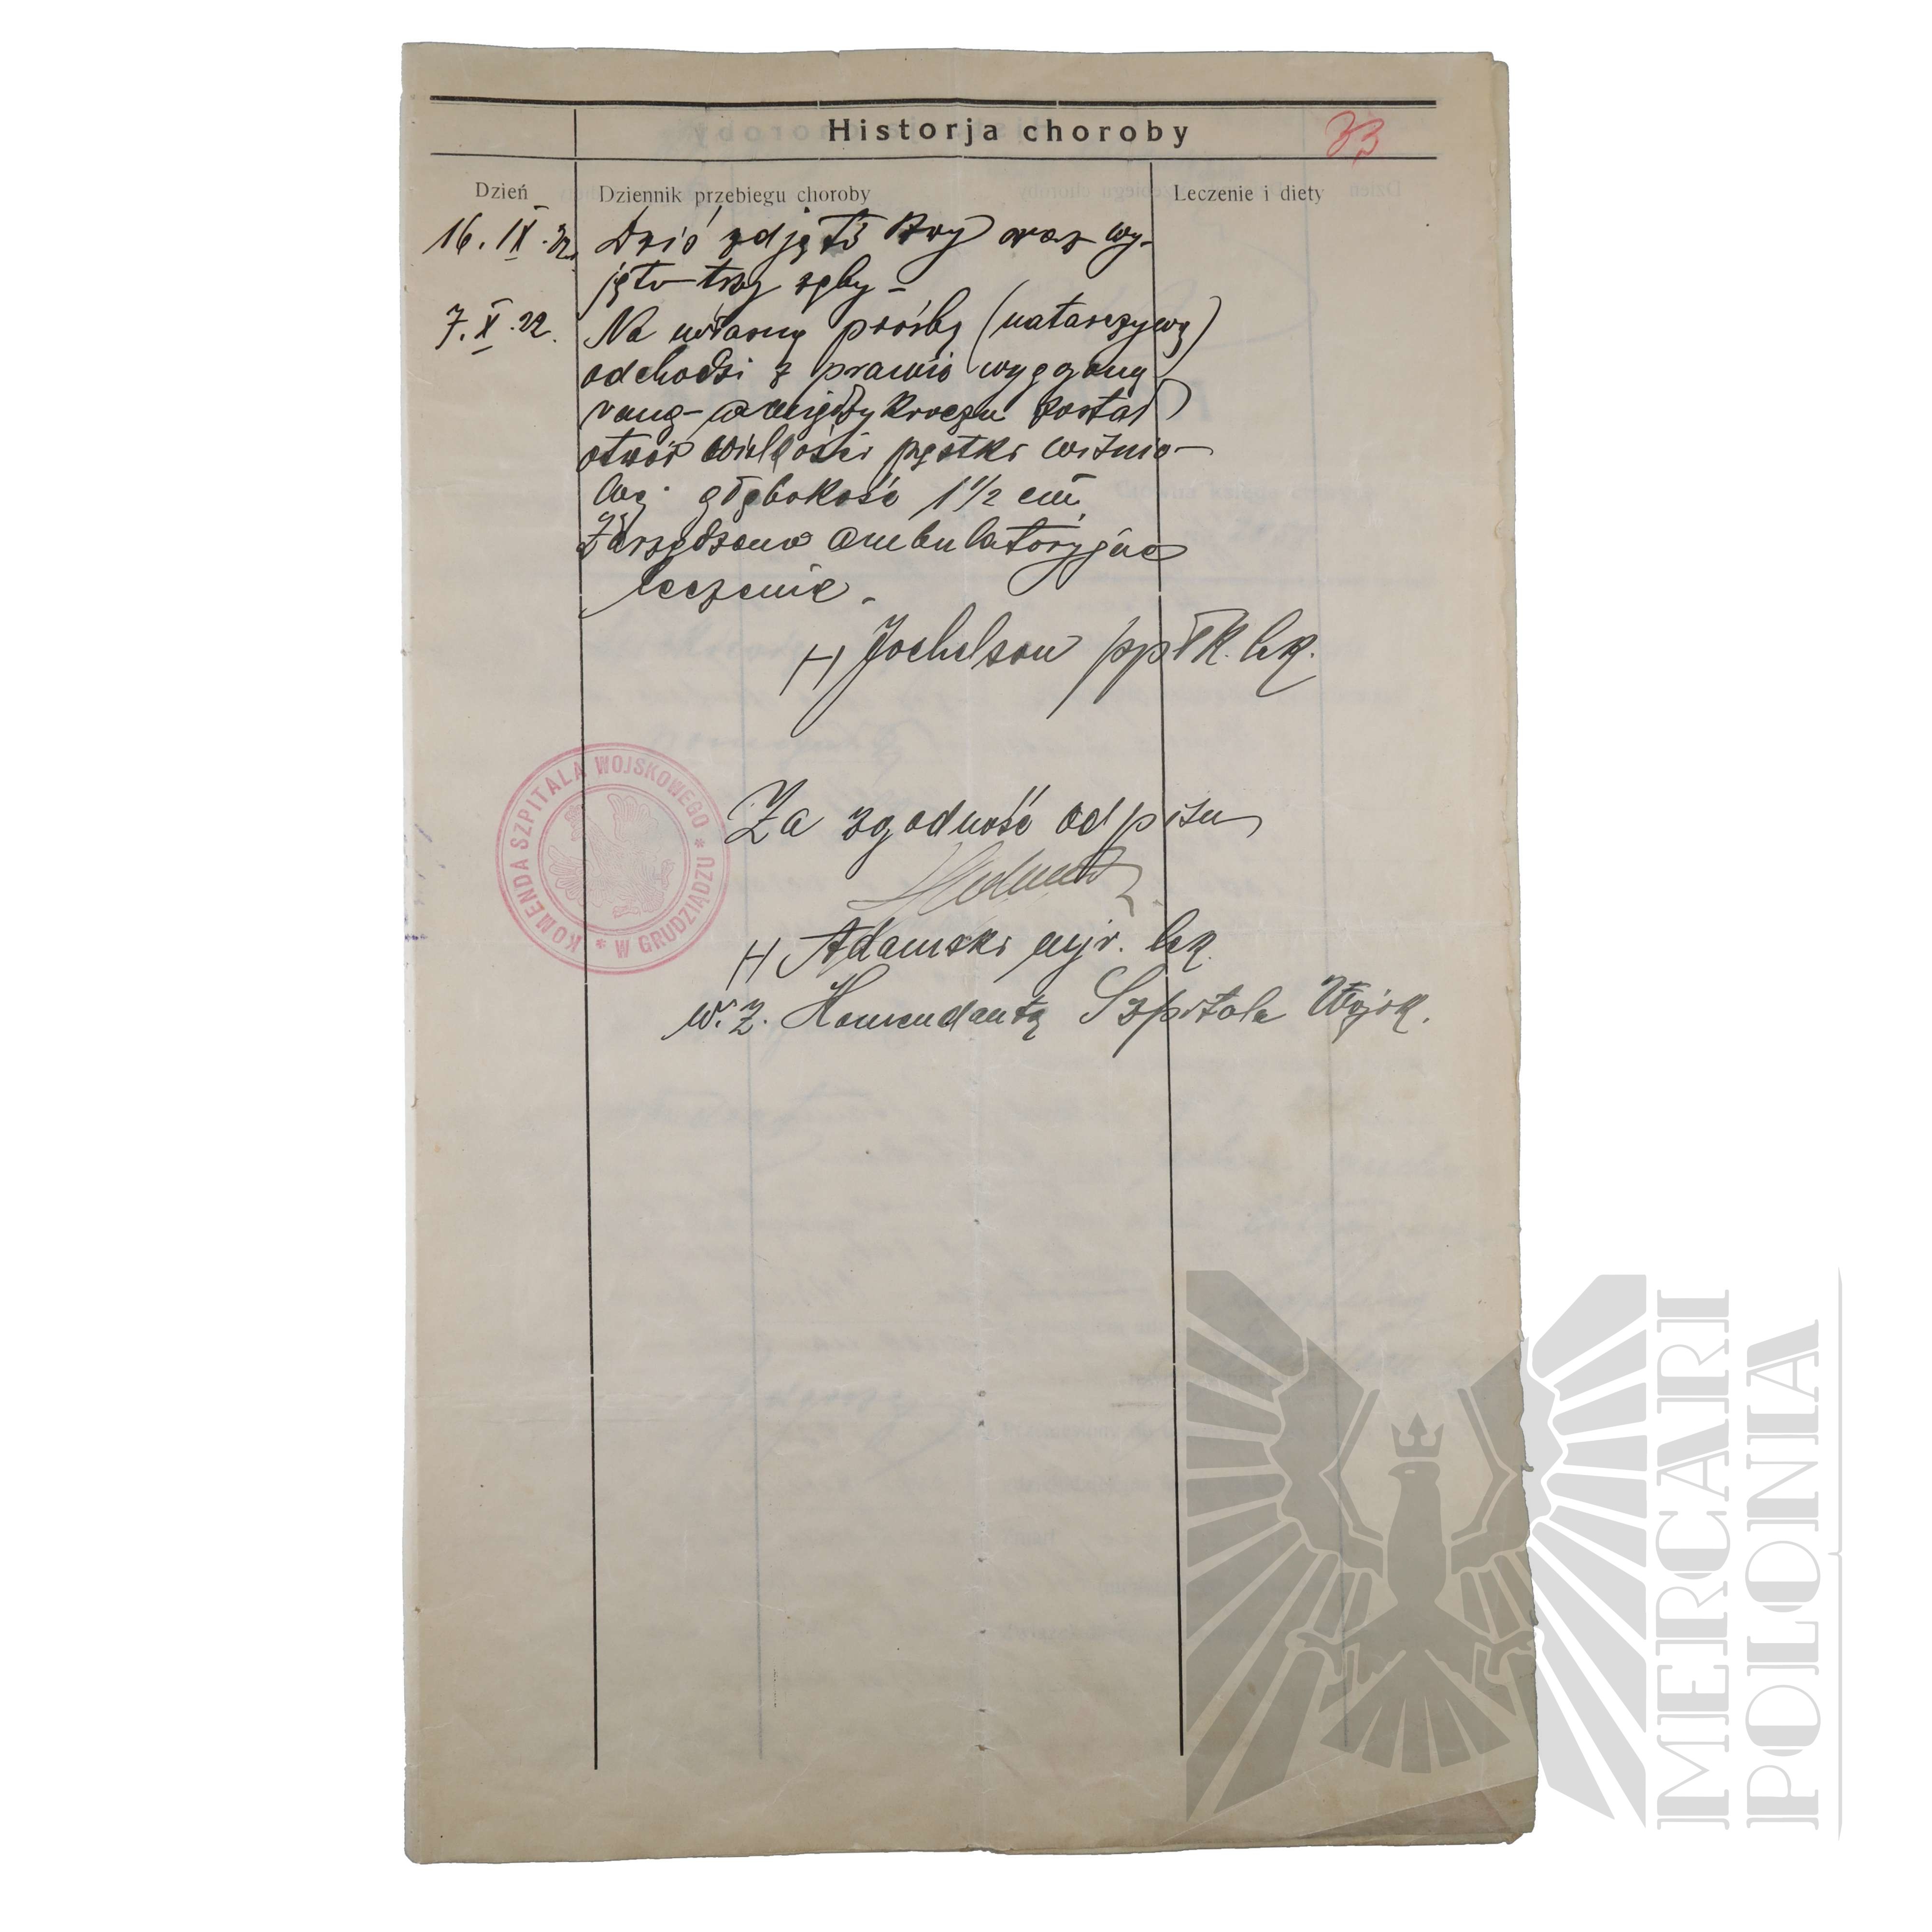 Historja choroby
33
Dzień
Dziennik przebiegu choroby
Leczenie i diety
16. IX. 22.
Dziś zdjęto szwy oraz wy-
jęto trzy zęby –
7. X. 22.
Na własną prośbę (natarczywą)
odchodzi z prawie wygojoną
raną – w międzykroczu został
otwór wielkości pestki wiśnio-
wej głębokość 1 1/2 cm.
Zarządzono ambulatoryjne
leczenie. –
Jochelson ppłk. lek.
KOMENDA SZPITALA WOJSKOWEGO * W GRUDZIĄDZU *
Za zgodność odpisu
Adamski mjr. lek.
w. z. Komendanta Szpitala Wojsk.
MERCARI
POLONIA